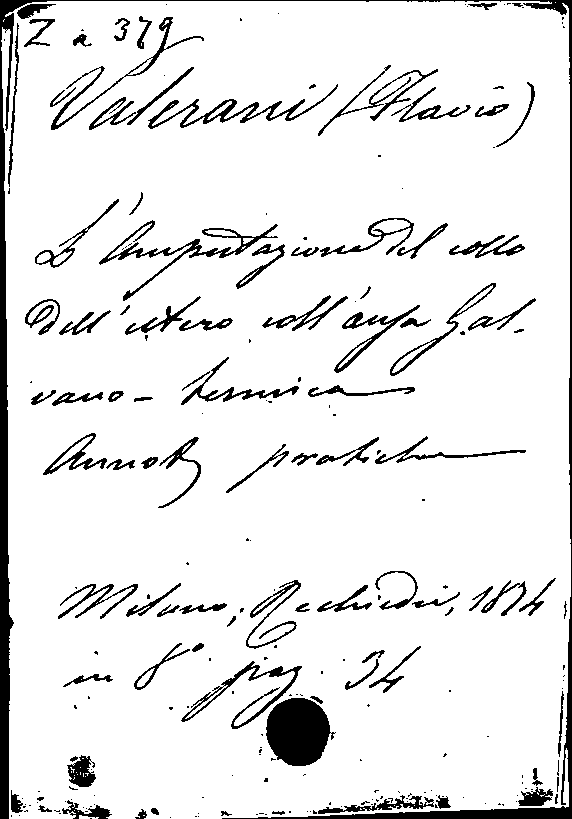 Z a 379
Valerani (Flavio)
L'Amputazione del collo
dell'utero coll'ansa Gal-
vano-termica
Annot. pratiche
Milano, Rechiedei, 1874
in 8° pag. 34